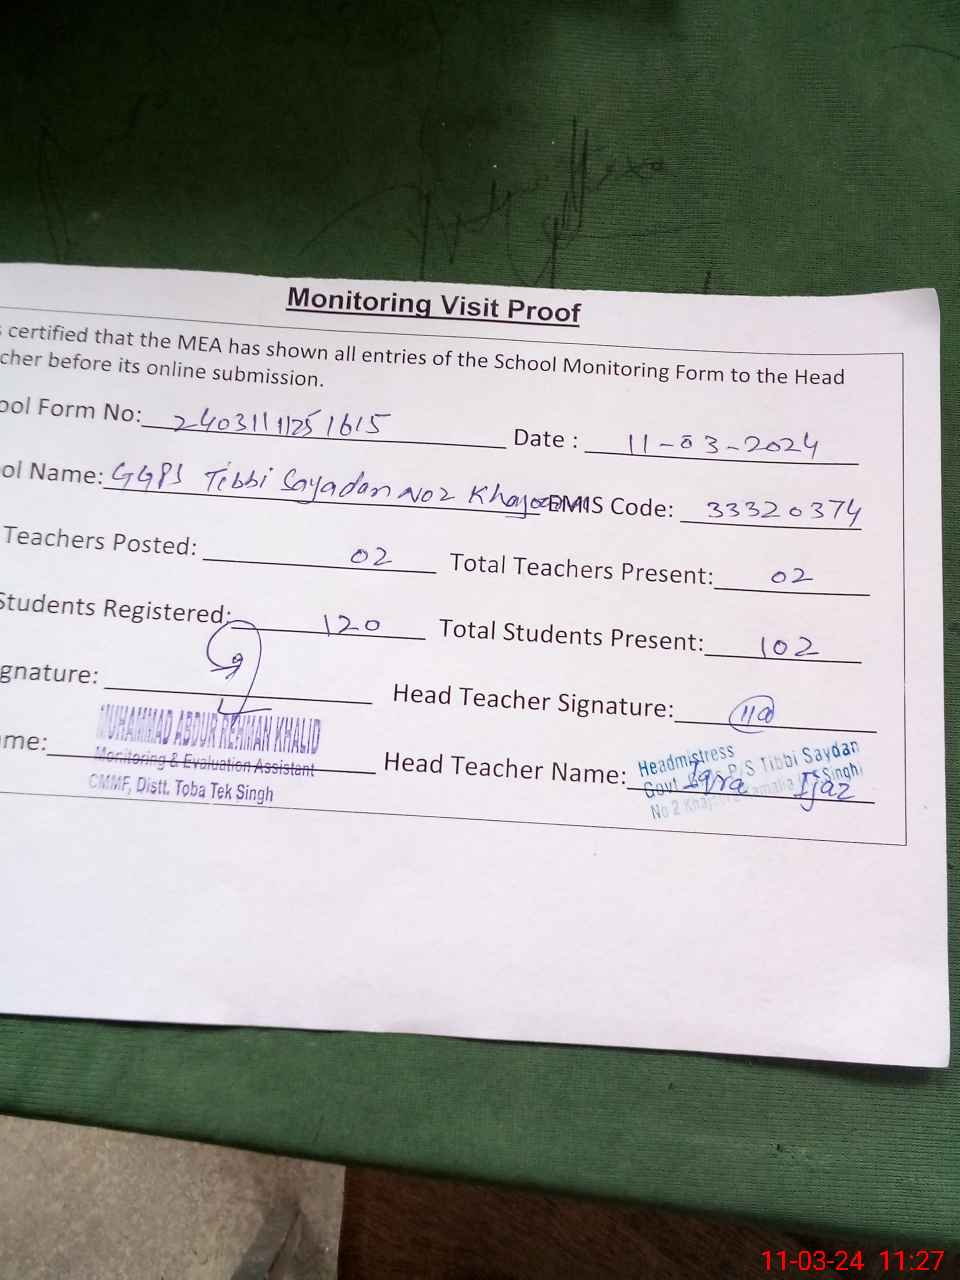 Monitoring Visit Proof
certified that the MEA has shown all entries of the School Monitoring Form to the Head
cher before its online submission.
ool Form No: 2403111125 1615 Date : 11-03-2024
ol Name: GGPS Tibbi Sayadan No2 EMIS Code: 33320374
Teachers Posted: 02 Total Teachers Present: 02
Students Registered: 120 Total Students Present: 102
gnature: Head Teacher Signature:
MUHAMMAD ABDUR REHMAN KHALID
me: Head Teacher Name: Iqra Ijaz
Monitoring & Evaluation Assistant
CMMF, Distt. Toba Tek Singh
Headmistress
Govt P/S Tibbi Saydan
No 2 Singh
11-03-24 11:27